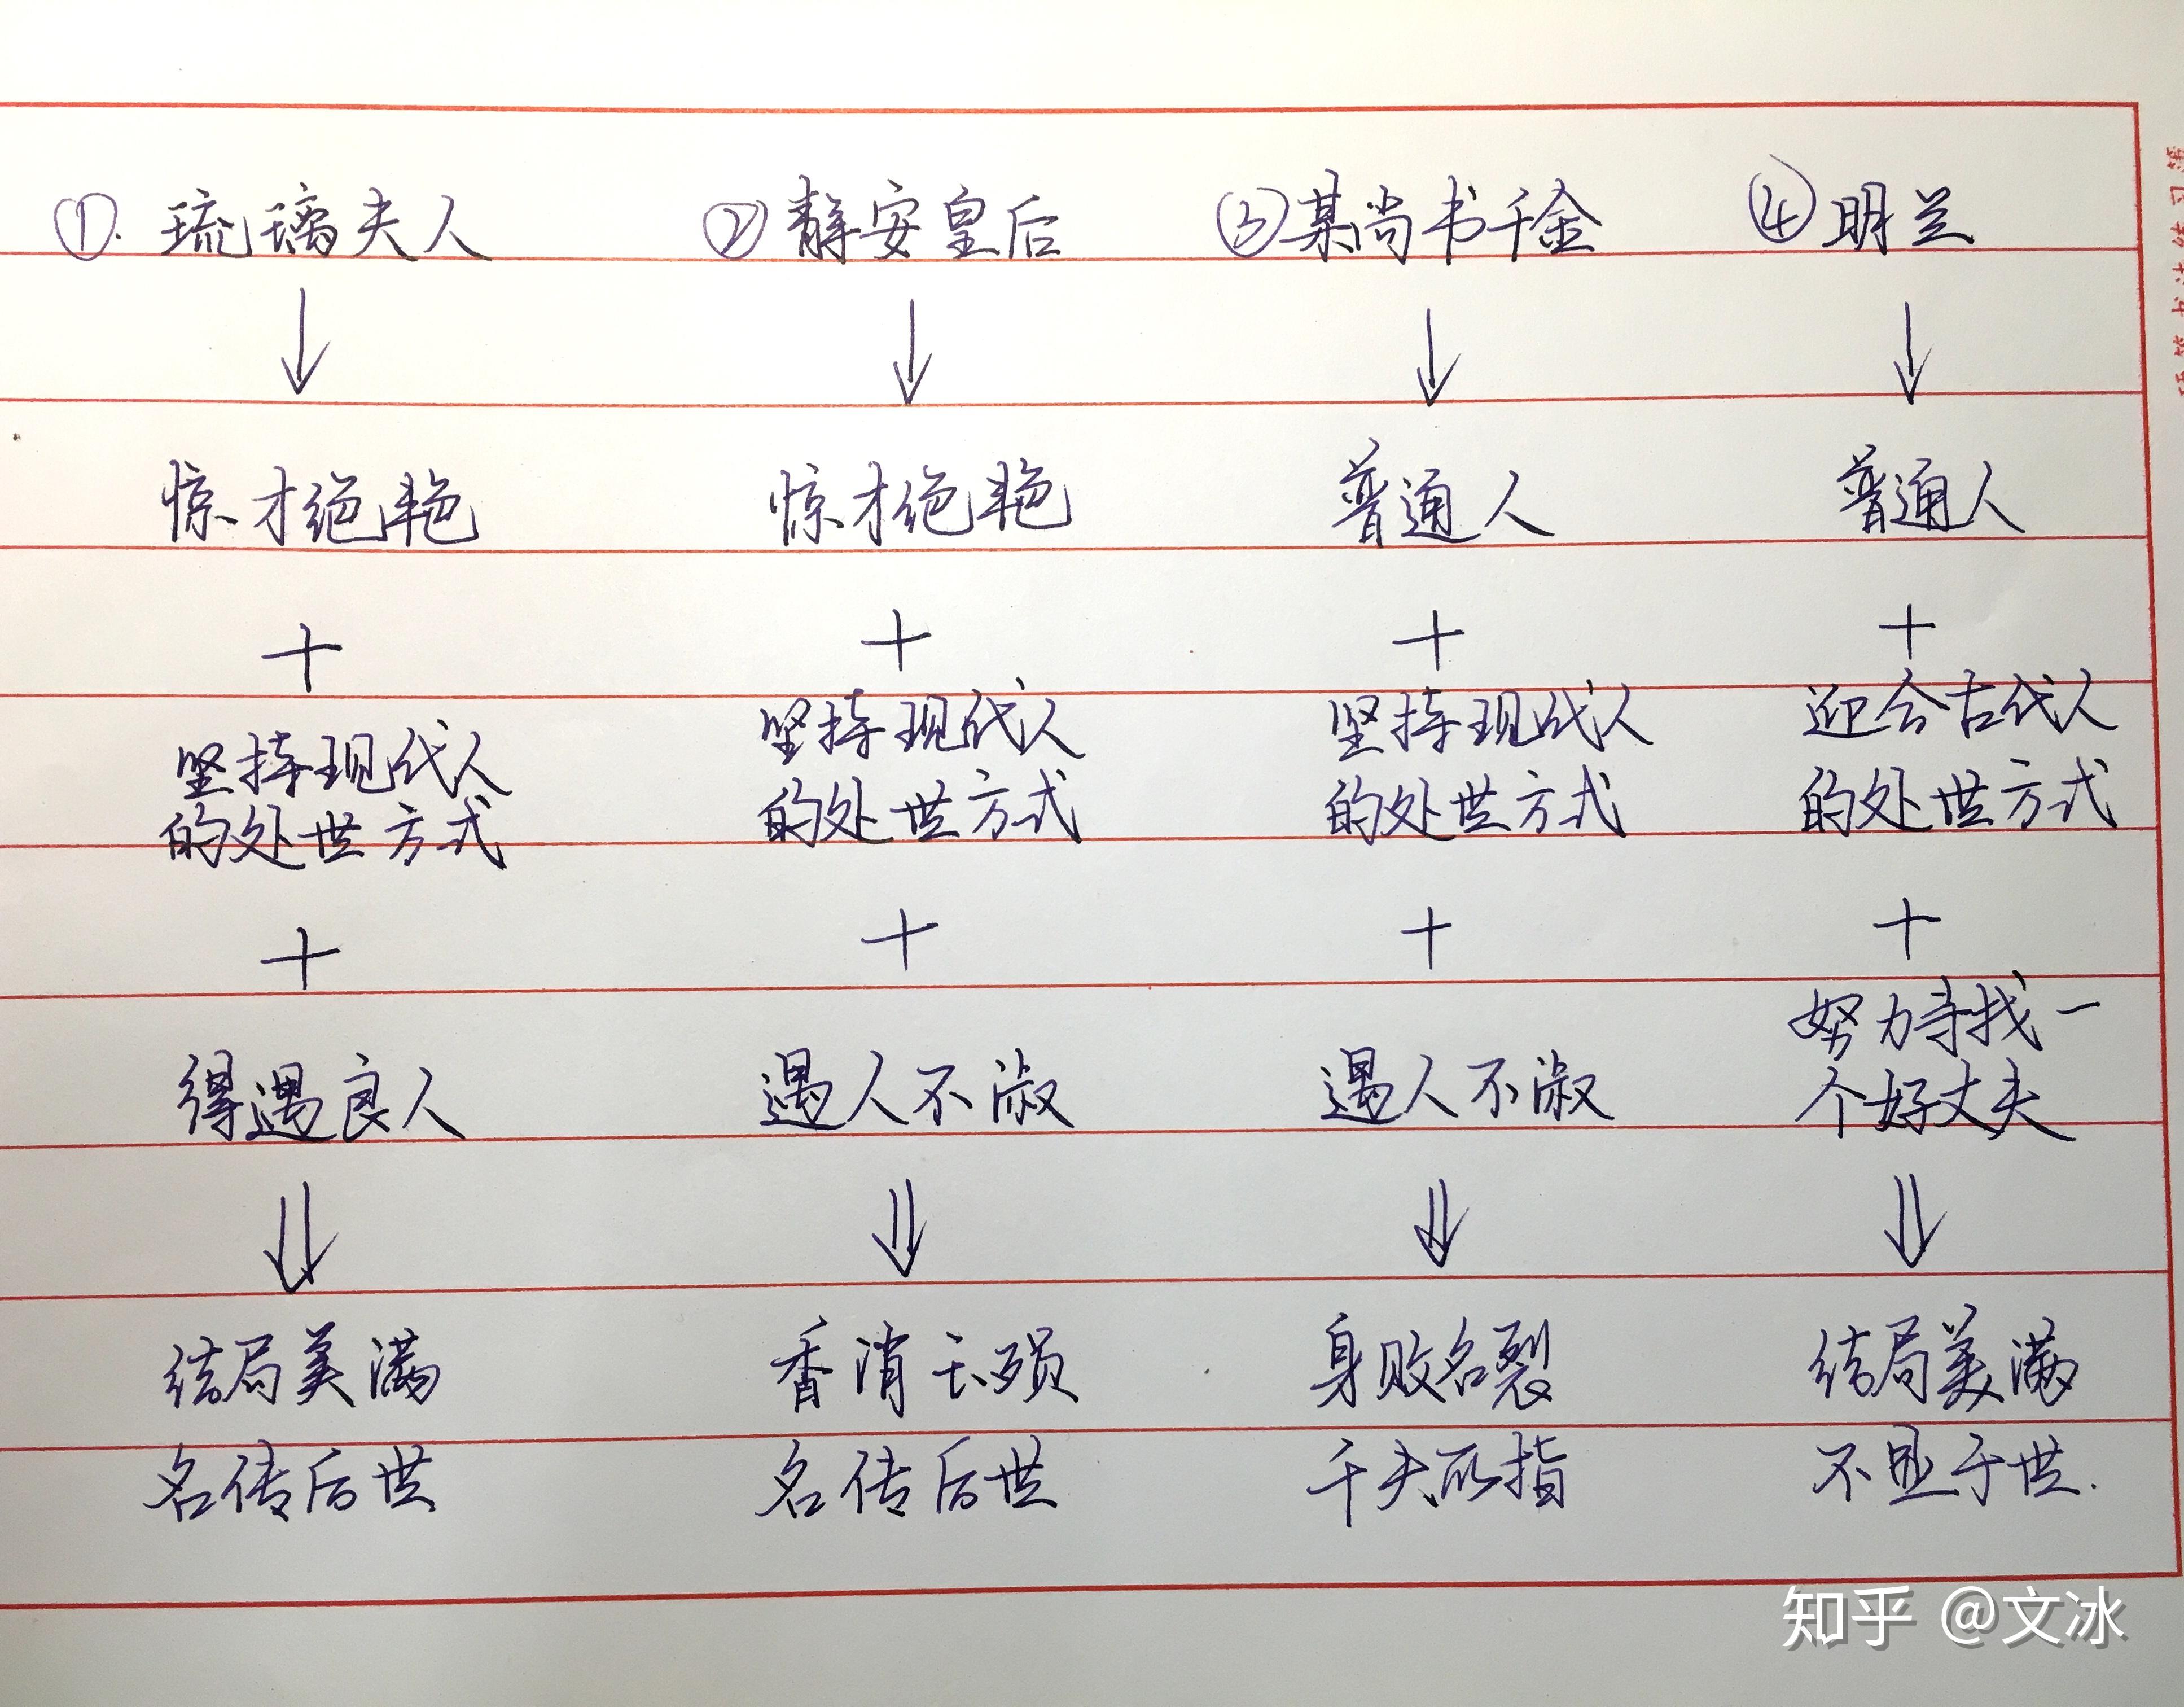 ①. 琉璃夫人 ②静安皇后 ③某尚书千金 ④明兰
↓ ↓ ↓ ↓
惊才绝艳 惊才绝艳 普通人 普通人
+ + + +
坚持现代人 坚持现代人 坚持现代人 迎合古代人
的处世方式 的处世方式 的处世方式 的处世方式
+ + + +
得遇良人 遇人不淑 遇人不淑 努力寻找一
个好丈夫
⇓ ⇓ ⇓ ⇓
结局美满 香消玉殒 身败名裂 结局美满
名传后世 名传后世 千夫所指 不显于世.
知乎 @文冰